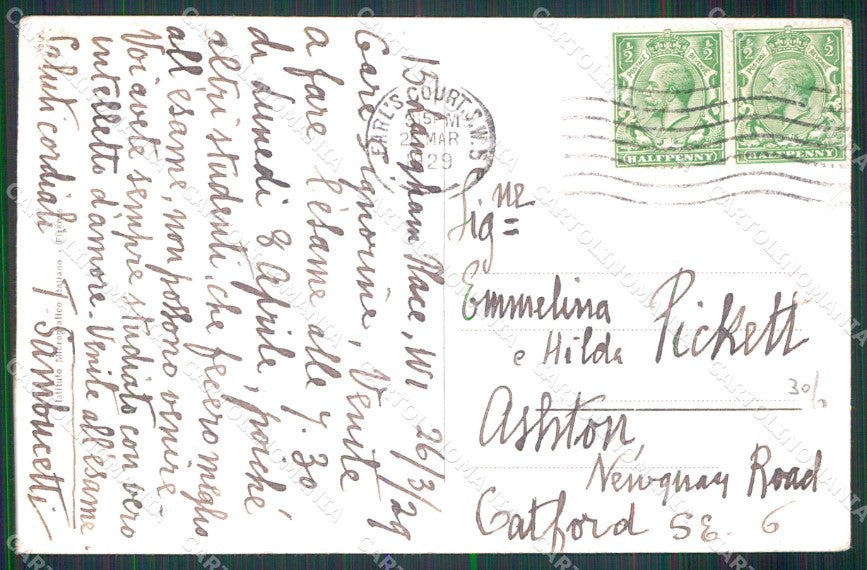 15 Langham Place, W1 26/3/29
Care Signorine, Venite
a fare l'esame alle 7.30
di lunedì 8 aprile, poiché
altri studenti, che fecero meglio
all'esame, non possono venire.
Voi avete sempre studiato con vero
intelletto d'amore. Venite all'esame.
Saluti cordiali T Sambucetti
Istituto Micrografico Italiano - Firenze
EARL'S COURT. S.W.5
MAR
29
POSTAGE REVENUE
1/2 1/2
HALFPENNY
POSTAGE REVENUE
1/2 1/2
HALFPENNY
Sig.ne
Emmelina
e Hilda Pickett
Ashton,
Newquay Road
Catford S.E. 6
30/
CARTOLINOMANIA